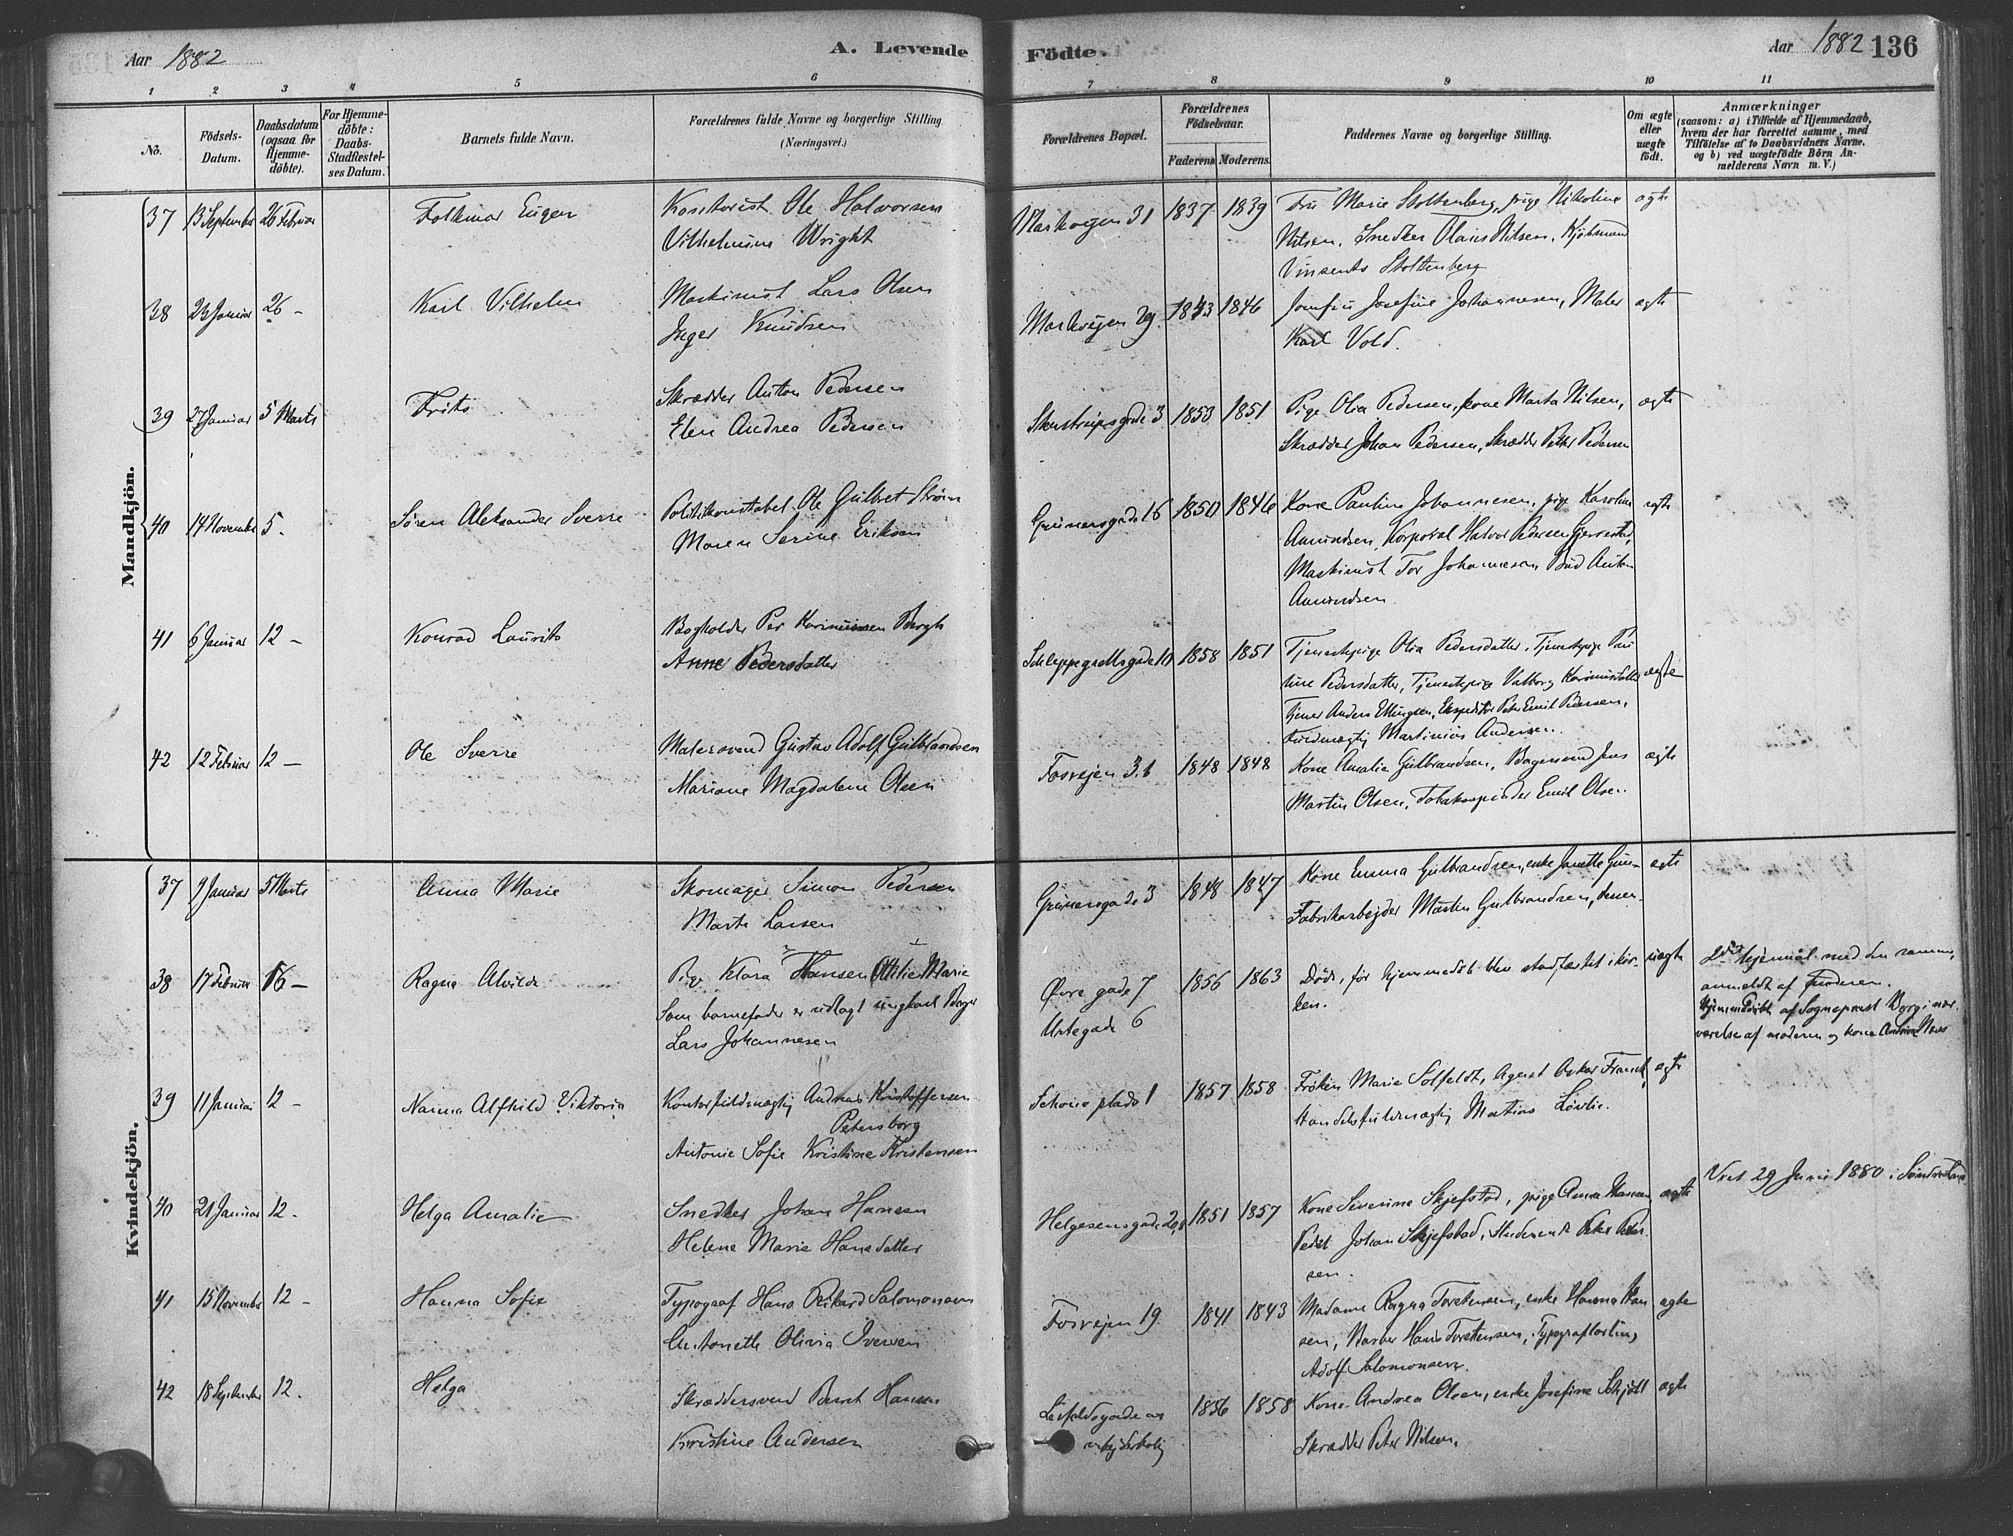 Aar 1882
A. Levende
Födte.
Aar 1882 136
1 2 3 4 5 6 7 8 9 10 11
No.
Födsels-Datum.
Daabsdatum (ogsaa for Hjemme-döbte).
For Hjemme-döbte: Daabs-Stadfæstelses Datum.
Barnets fulde Navn.
Forældrenes fulde Navne og borgerlige Stilling (Næringsvei.)
Forældrenes Bopæl.
Forældrenes Födselsaar.
Faderens. Moderens.
Faddernes Navne og borgerlige Stilling.
Om ægte eller uægte födt.
Anmærkninger
(saasom: a) i Tilfælde af Hjemmedaab, hvem der har forrettet samme, med Tilföielse af to Daabsvidners Navne. og b) ved uægtefödte Börn Anmelderens Navn m. V.)
Mandkjön.
37 13 September 26 Februar Folkmar Eugen Kontorist Ole Halvorsen
Vilhelmine Wright
Markvejen 31 1837 1839 Fru Marie Stoltenberg, pige Nikoline
Nilsen, Snedker Olaus Nilsen, Kjöbmand
Vinsents Stoltenberg
ægte
38 23 Januar 26 – Karl Vilhelm Maskinist Lars Olsen
Inger Knudsen
Markvejen 29. 1843 1846 Jomfru Josefine Johannesen, Maler
Karl Vold.
ægte
39 27 Januar 5 Marts Frits Skrædder Anton Pedersen
Elen Andrea Pedersen
3 1853 1851 Pige Olia Pedersen, kone Marta Nilsen,
Skrædder Johan Pedersen, Skrædder Petter Pedersen
ægte
40 14 November 5. Sören Aleksander Sverre Politikonstabel Ole Gulbret Ström
Maren Serine Eriksen
Grünersgade 16 1850 1846 Kone Pauline Johannesen, pige Karoline
Amundsen, Korporal Halvor Pedersen
Maskinist Tor Johannesen Anton
Amundsen.
ægte
41 6 Januar 12 – Konrad Laurits Bogholder Per Bergh
Anne Pedersdatter
Schleppegrellsgade 10 1858 1851 Tjenestepige Olia Pedersdatter, Tjenestepige
Pedersdatter, Tjenestepige Valborg
Tjener Anders Ellingsen, Ekspeditör Peter Emil Pedersen,
Fuldmægtig Martinius Andersen.
ægte
42 12 Februar 12 – Ole Sverre Malersvend Gustav Adolf Gulbrandsen
Mariane Magdalene Olsen
Fosvejen 1848 1848 Kone Amalie Gulbrandsen, Bagersvend Jens
Martin Olsen, Tobaksspinder Emil Olsen.
ægte
Kvindekjön.
37 9 Januar 5 Marts Anna Marie Skomager Simon Pedersen
Marte Larsen
Grünersgade 3 1848 1847 Kone Emma Gulbrandsen, enke Janette
Fabrikarbejder Martin Gulbrandsen,
ægte
38 17 Februar 16 – Ragna Alvilde Pige Klara Hansen Ottilie Marie
Som barnefader er udlagt ungkarl Bager
Lars Johannesen
Övre gade 7
Urtegade 6
1856 1863 Död, för hjemmedåb blev stadfæstet i kir-
ken.
uægte
med den samme,
anmeldt af
Hjemmedöbt af Sogneprest
værelse af moderen og kone
39 11 Januar 12 – Nanna Alfhild Viktoria Kontorfuldmægtig Andreas Kristoffersen
Petersborg
Antonie Sofie Kristine Kristensen
Schous plads 1 1857 1858 Fröken Marie Solfeldt, Agent Oskar
Handelsfuldmægtig Matias Lövlie.
ægte
40 21 Januar 12. Helga Amalie Snedker Johan Hansen
Helene Marie Hansdatter
Helgesensgade 1851 1857 Kone Severine Skjefstad, pige Anna Hansen
Johan Skjefstad, Peder
sen.
ægte
Viet 29 Juni 1880 i
41 15 November 12 – Hanna Sofie Typograf Hans Rikard Salomonsen
Antonette Olivia Iversen
Fosvejen 19 1841 1843 Madame Ragna Torstensen, enke Hanna Han
sen, Hans Torstensen,
Adolf Salomonsen.
ægte
42 18 September 12. Helga Skræddersvend Bernt Hansen
Kristine Andersen
1856 1858 Kone Andrea Olsen, enke Josefine
Skrædder Peter Nilsen.
ægte